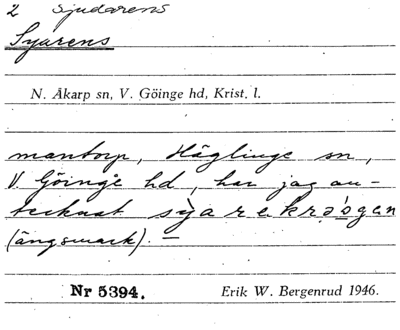 2 Sjudarens
Syarens
N. Åkarp sn, V. Göinge hd, Krist. l.
mantorp, Häglinge sn,
V. Göinge hd, har jag an-
tecknat syarekrəogen
(ängsmark). —
Nr 5394. Erik W. Bergenrud 1946.